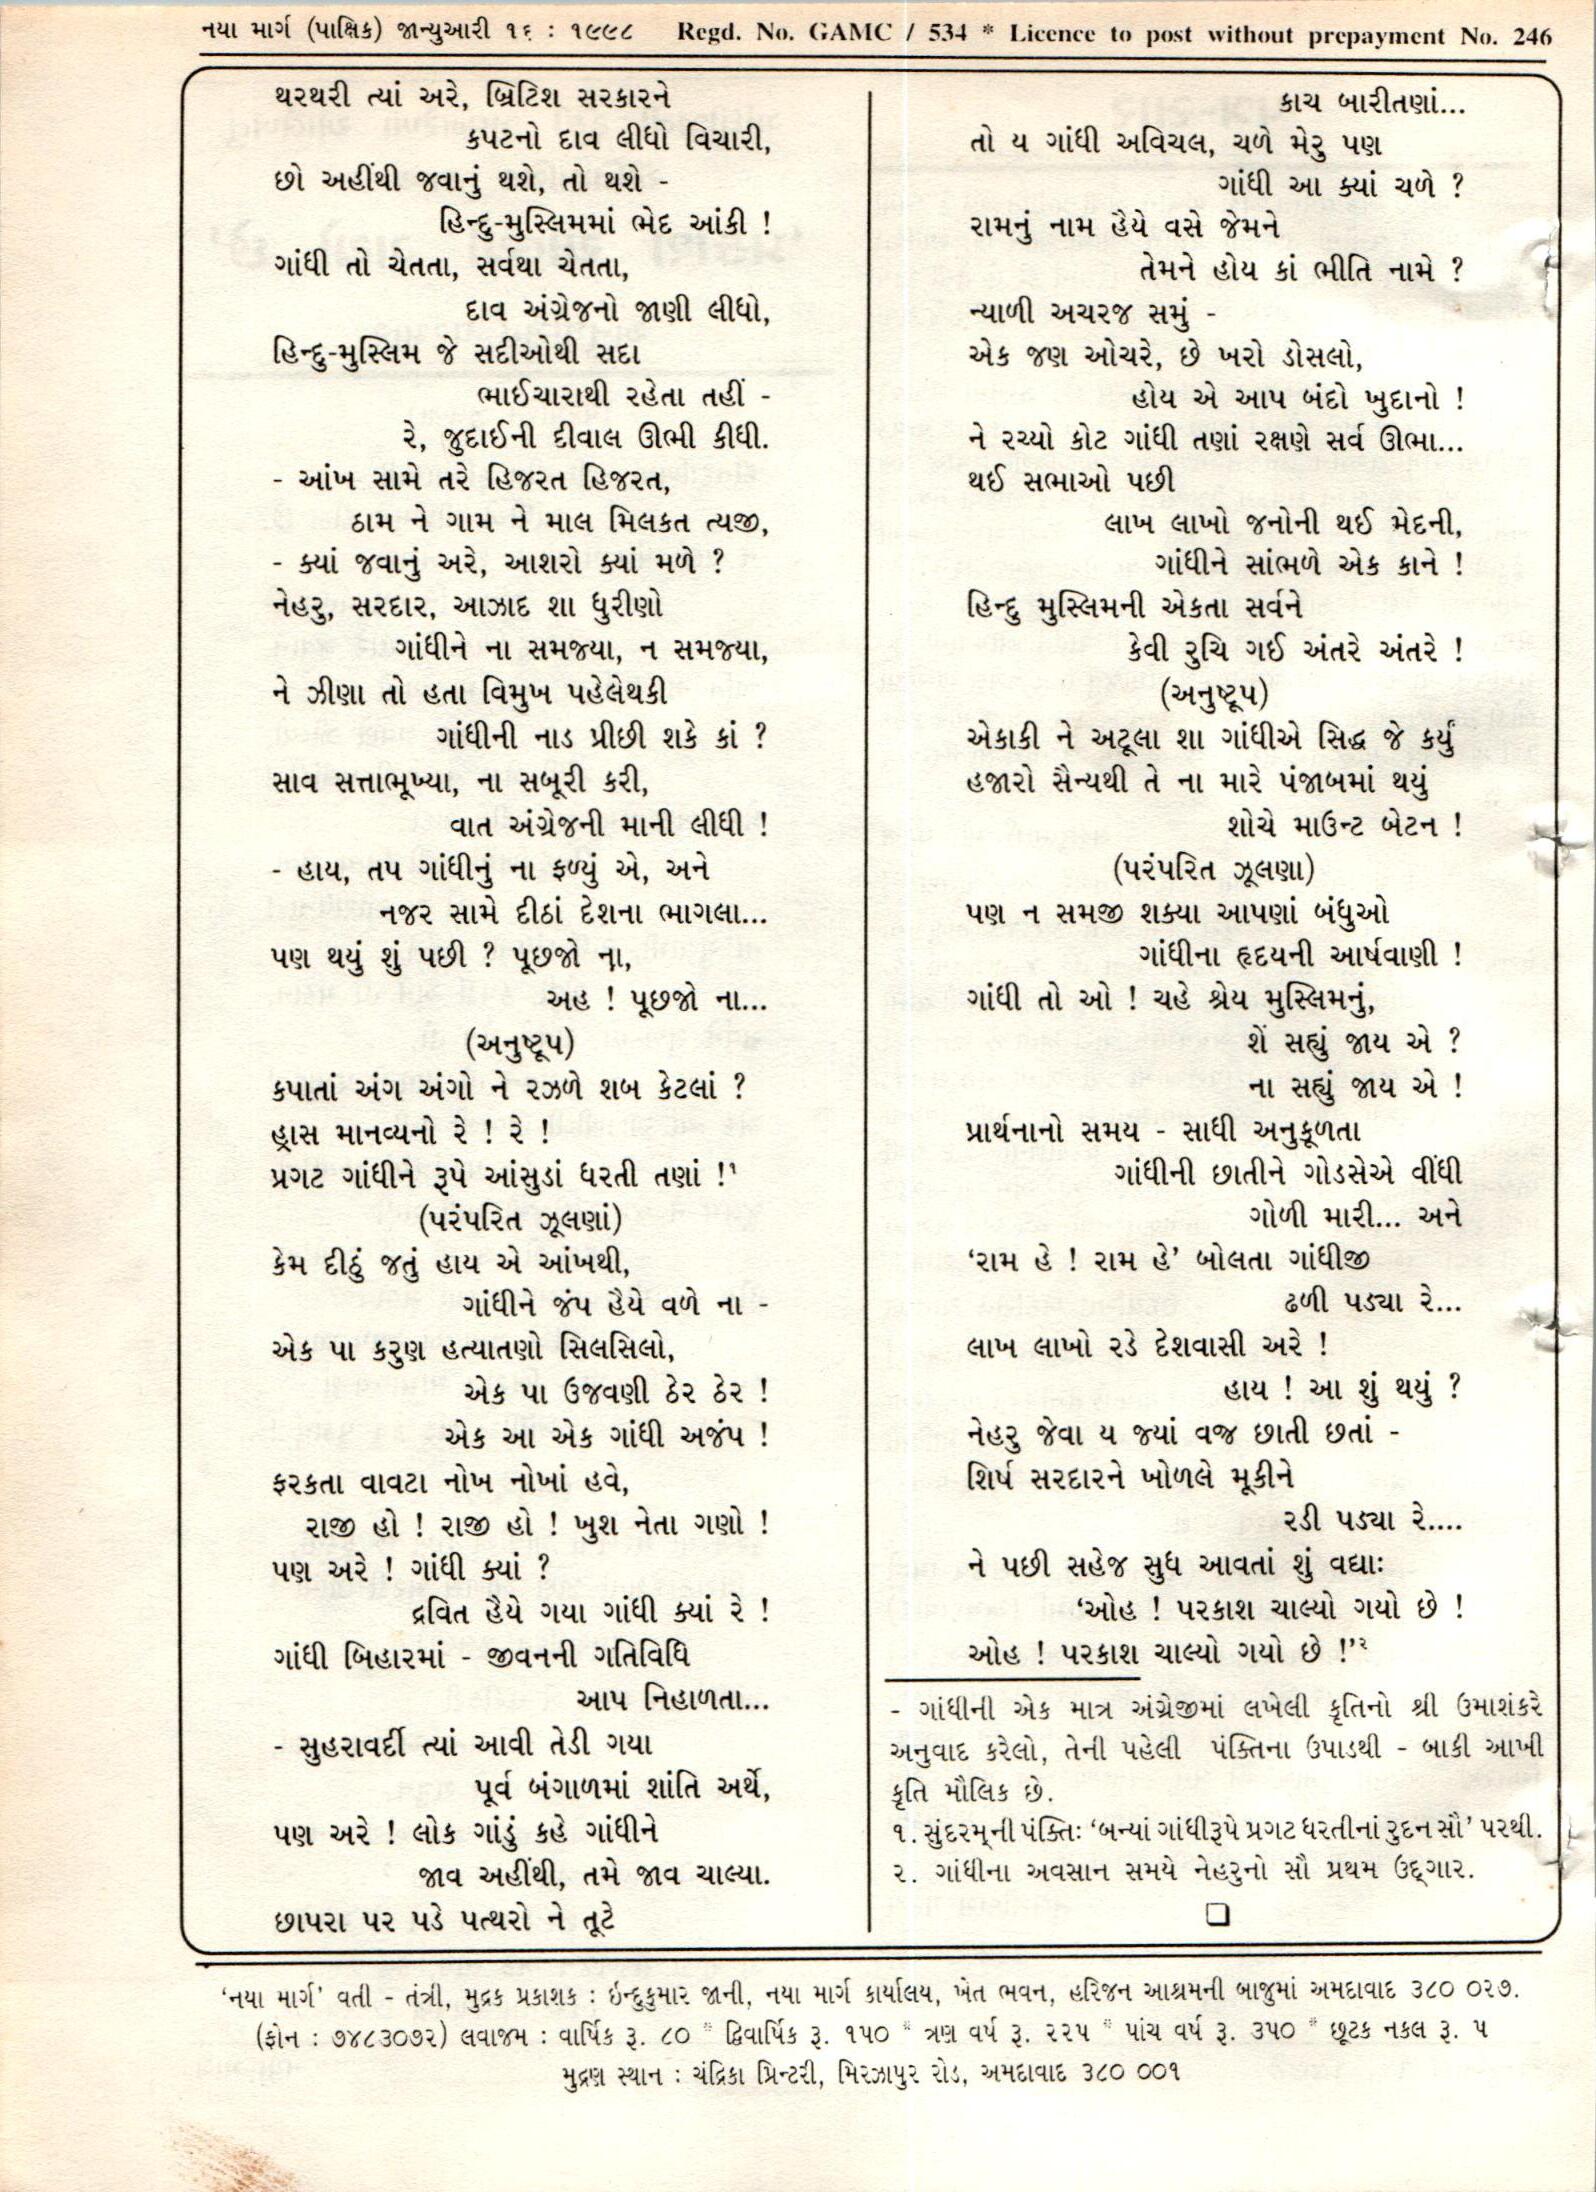 નયા માર્ગ (પાક્ષિક) જાન્યુઆરી ૧૬ : ૧૯૯૮ Regd. No. GAMC / 534 * Licence to post without prepayment No. 246
થરથરી ત્યાં અરે, બ્રિટિશ સરકારને
કપટનો દાવ લીધો વિચારી,
છો અહીંથી જવાનું થશે, તો થશે -
હિન્દુ-મુસ્લિમમાં ભેદ આંકી !
ગાંધી તો ચેતતા, સર્વથા ચેતતા,
દાવ અંગ્રેજનો જાણી લીધો,
હિન્દુ-મુસ્લિમ જે સદીઓથી સદા
ભાઈચારાથી રહેતા તહીં -
રે, જુદાઈની દીવાલ ઊભી કીધી.
- આંખ સામે તરે હિજરત હિજરત,
ઠામ ને ગામ ને માલ મિલકત ત્યજી,
- ક્યાં જવાનું અરે, આશરો ક્યાં મળે ?
નેહરુ, સરદાર, આઝાદ શા ધુરીણો
ગાંધીને ના સમજ્યા, ન સમજ્યા,
ને ઝીણા તો હતા વિમુખ પહેલેથકી
ગાંધીની નાડ પ્રીછી શકે કાં ?
સાવ સત્તાભૂખ્યા, ના સબૂરી કરી,
વાત અંગ્રેજની માની લીધી !
- હાય, તપ ગાંધીનું ના ફળ્યું એ, અને
નજર સામે દીઠાં દેશના ભાગલા...
પણ થયું શું પછી ? પૂછજો ના,
અહ ! પૂછજો ના...
(અનુષ્ટૂપ)
કપાતાં અંગ અંગો ને રઝળે શબ કેટલાં ?
હ્રાસ માનવ્યનો રે ! રે !
પ્રગટ ગાંધીને રૂપે આંસુડાં ધરતી તણાં !૧
(પરંપરિત ઝૂલણાં)
કેમ દીઠું જતું હાય એ આંખથી,
ગાંધીને જંપ હૈયે વળે ના -
એક પા કરુણ હત્યાતણો સિલસિલો,
એક પા ઉજવણી ઠેર ઠેર !
એક આ એક ગાંધી અજંપ !
ફરકતા વાવટા નોખ નોખાં હવે,
રાજી હો ! રાજી હો ! ખુશ નેતા ગણો !
પણ અરે ! ગાંધી ક્યાં ?
દ્રવિત હૈયે ગયા ગાંધી ક્યાં રે !
ગાંધી બિહારમાં - જીવનની ગતિવિધિ
આપ નિહાળતા...
- સુહરાવર્દી ત્યાં આવી તેડી ગયા
પૂર્વ બંગાળમાં શાંતિ અર્થે,
પણ અરે ! લોક ગાંડું કહે ગાંધીને
જાવ અહીંથી, તમે જાવ ચાલ્યા.
છાપરા પર પડે પત્થરો ને તૂટે
કાચ બારીતણાં...
તો ય ગાંધી અવિચલ, ચળે મેરુ પણ
ગાંધી આ ક્યાં ચળે ?
રામનું નામ હૈયે વસે જેમને
તેમને હોય કાં ભીતિ નામે ?
ન્યાળી અચરજ સમું -
એક જણ ઓચરે, છે ખરો ડોસલો,
હોય એ આપ બંદો ખુદાનો !
ને રચ્યો કોટ ગાંધી તણાં રક્ષણે સર્વ ઊભા...
થઈ સભાઓ પછી
લાખ લાખો જનોની થઈ મેદની,
ગાંધીને સાંભળે એક કાને !
હિન્દુ મુસ્લિમની એકતા સર્વને
કેવી રુચિ ગઈ અંતરે અંતરે !
(અનુષ્ટૂપ)
એકાકી ને અટૂલા શા ગાંધીએ સિદ્ધ જે કર્યું
હજારો સૈન્યથી તે ના મારે પંજાબમાં થયું
શોચે માઉન્ટ બેટન !
(પરંપરિત ઝૂલણા)
પણ ન સમજી શક્યા આપણાં બંધુઓ
ગાંધીના હૃદયની આર્ષવાણી !
ગાંધી તો ઓ ! ચહે શ્રેય મુસ્લિમનું,
શેં સહ્યું જાય એ ?
ના સહ્યું જાય એ !
પ્રાર્થનાનો સમય - સાધી અનુકૂળતા
ગાંધીની છાતીને ગોડસેએ વીંધી
ગોળી મારી... અને
‘રામ હે ! રામ હે’ બોલતા ગાંધીજી
ઢળી પડ્યા રે...
લાખ લાખો રડે દેશવાસી અરે !
હાય ! આ શું થયું ?
નેહરુ જેવા ય જ્યાં વજ્ર છાતી છતાં -
શિર્ષ સરદારને ખોળલે મૂકીને
રડી પડ્યા રે....
ને પછી સહેજ સુધ આવતાં શું વદ્યાઃ
‘ઓહ ! પરકાશ ચાલ્યો ગયો છે !
ઓહ ! પરકાશ ચાલ્યો ગયો છે !’૨
- ગાંધીની એક માત્ર અંગ્રેજીમાં લખેલી કૃતિનો શ્રી ઉમાશંકરે
અનુવાદ કરેલો, તેની પહેલી પંક્તિના ઉપાડથી - બાકી આખી
કૃતિ મૌલિક છે.
૧. સુંદરમ્‌ની પંક્તિઃ ‘બન્યાં ગાંધીરૂપે પ્રગટ ધરતીનાં રુદન સૌ’ પરથી.
૨. ગાંધીના અવસાન સમયે નેહરુનો સૌ પ્રથમ ઉદ્‌ગાર.
‘નયા માર્ગ’ વતી - તંત્રી, મુદ્રક પ્રકાશક : ઇન્દુકુમાર જાની, નયા માર્ગ કાર્યાલય, ખેત ભવન, હરિજન આશ્રમની બાજુમાં અમદાવાદ ૩૮૦ ૦૨૭.
(ફોન : ૭૪૮૩૦૭૨) લવાજમ : વાર્ષિક રૂ. ૮૦ * દ્વિવાર્ષિક રૂ. ૧૫૦ * ત્રણ વર્ષ રૂ. ૨૨૫ * પાંચ વર્ષ રૂ. ૩૫૦ * છૂટક નકલ રૂ. ૫
મુદ્રણ સ્થાન : ચંદ્રિકા પ્રિન્ટરી, મિરઝાપુર રોડ, અમદાવાદ ૩૮૦ ૦૦૧